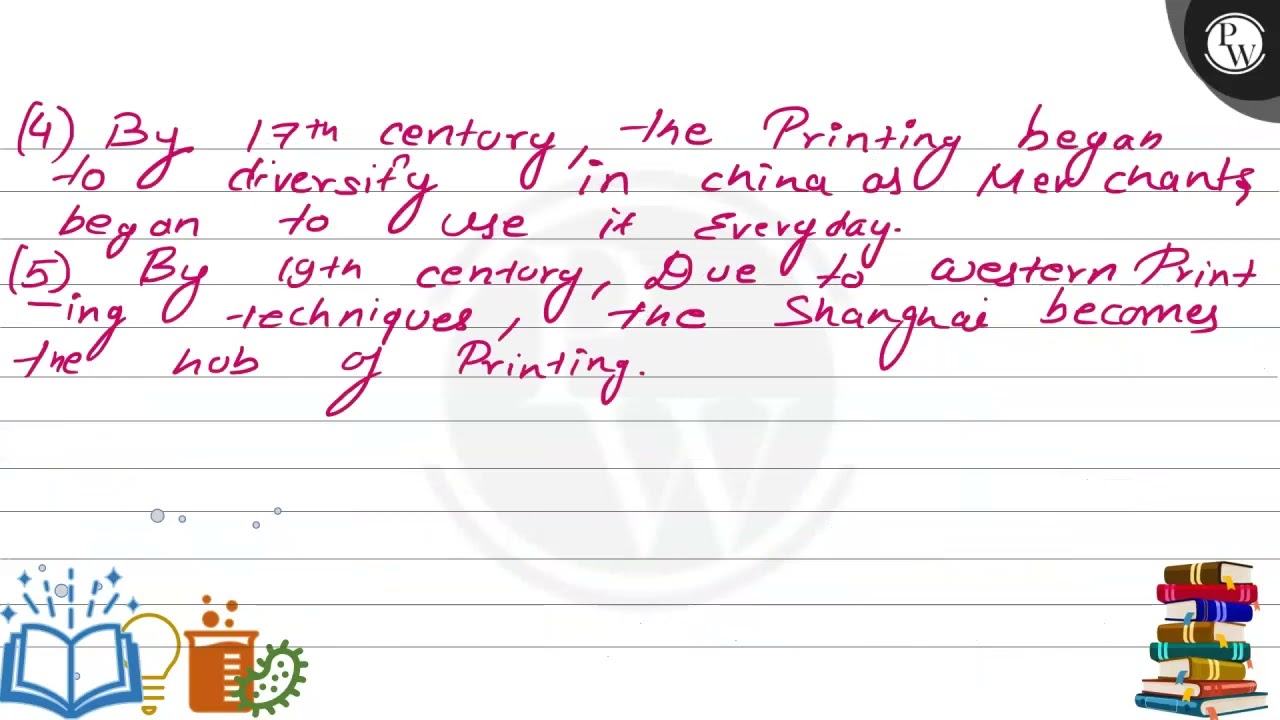 PW
(4) By 17th century, the Printing began
to diversify in china as Merchants
began to use it Everyday.
(5) By 19th century, Due to western Print
-ing techniques, the Shanghai becomes
the hub of Printing.
PW